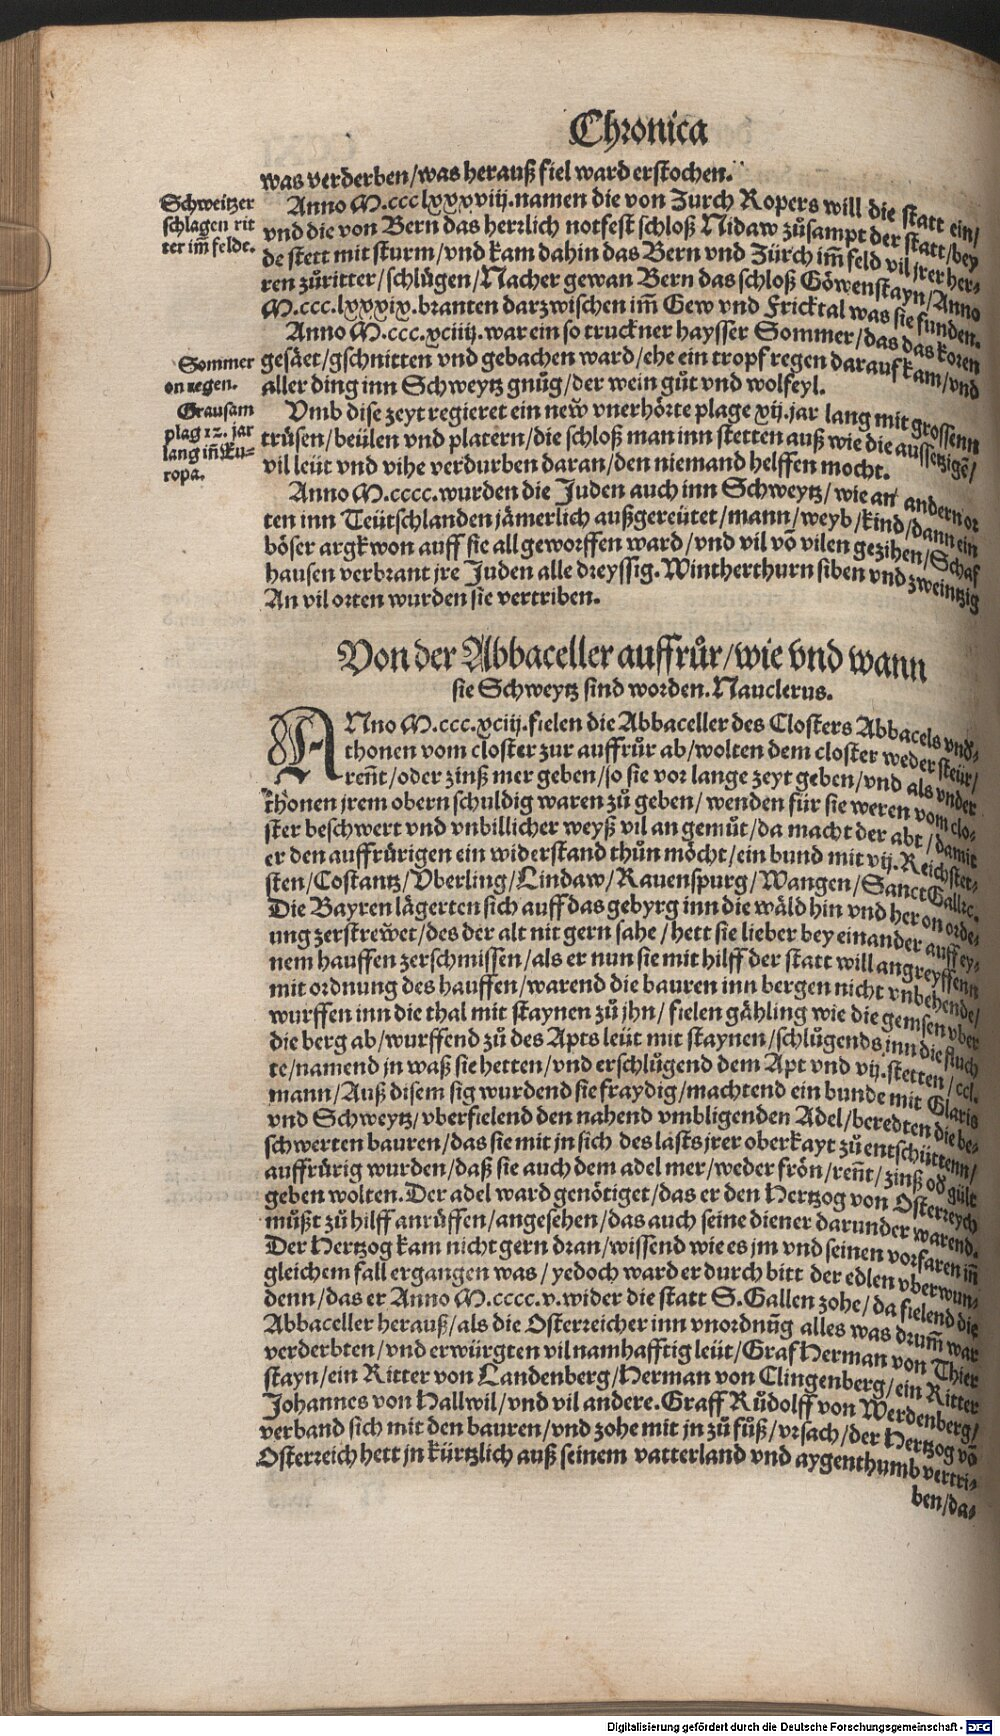 Chronica
was verderben/was herauß fiel ward erstochen.
Schweitzer
schlagen rit
ter im̄ felde.
Anno M.ccc lxxxviij. namen die von Zurch Ropers will die statt ein/
vnd die von Bern das herzlich notfest schloß Nidaw zůsampt der statt/bey
de stett mit sturm/vnd kam dahin das Bern vnd Zürch im̄ feld vil jrer her-
ren zůritter/schlůgen/Nacher gewan Bern das schloß Göwenstayn/Anno
M.ccc.lxxxix.branten darzwischen im̄ Gew vnd Fricktal was sie funden.
Sommer
on regen.
Anno M.ccc.xciiij.war ein so truckner haysser Sommer/das das koren
gesäet/gschnitten vnd gebachen ward/ehe ein tropf regen darauf kam/vnd
aller ding inn Schweytz gnůg/der wein gůt vnd wolfeyl.
Grausam
plag 12. jar
lang in̄ Eu-
ropa.
Vmb dise zeyt regieret ein new̃ vnerhörte plage xij.jar lang mit grossenn
trüsen/beülen vnd platern/die schloß man inn stetten auß wie die aussetzigẽ/
vil leüt vnd vihe verdurben daran/den niemand helffen mocht.
Anno M.cccc.wurden die Juden auch inn Schweytz/wie an andern or
ten inn Teütschlanden jämerlich außgereütet/mann/weyb/kind/dann ein
böser argkwon auff sie all geworffen ward/vnd vil võ vilen gezihen/Schaf
hausen verbrant jre Juden alle dreyssig.Wintherthurn siben vnd zweintzig
An vil orten wurden sie vertriben.
Von der Abbaceller auffrůr/wie vnd wann
sie Schweytz sind worden.Nauclerus.
ANno M.ccc.xciij.fielen die Abbaceller des Closters Abbacels vnd-
thonen vom closter zur auffrůr ab/wolten dem closter weder steür/
ren̄t/oder zinß mer geben/so sie vor lange zeyt geben/vnd als vnder
thonen jrem obern schuldig waren zů geben/wenden für sie weren vom clo-
ster beschwert vnd vnbillicher weyß vil an gemůt/da macht der abt/damit
er den auffrürigen ein widerstand thůn möcht/ein bund mit vij.Reichstet-
sten/Costantz/Vberling/Lindaw/Rauenspurg/Wangen/Sanct Gallꝛc.
Die Bayren lägerten sich auff das gebyrg inn die wäld hin vnd her on orde-
ung zerstrew̃et/des der alt nit gern sahe/hett sie lieber bey einander auff ey-
nem hauffen zerschmissen/als er nun sie mit hilff der statt will angreyffenn
mit ordnung des hauffen/warend die bauren inn bergen nicht vnbehende/
wurffen inn die thal mit staynen zů jhn/fielen gähling wie die gemsen vber
die berg ab/wurffend zů des Apts leüt mit staynen/schlůgends inn die fluch
te/namend jn waß sie hetten/vnd erschlůgend dem Apt vnd vij.stetten/ccl.
mann/Auß disem sig wurdend sie fraydig/machtend ein bunde mit Glaris
vnd Schweytz/vberfielend den nahend vmbligenden Adel/beredten die be-
schwerten bauren/das sie mit jn sich des lasts jrer oberkayt zů entschüttenn/
auffrürig wurden/daß sie auch dem adel mer/weder frön/ren̄t/zinß od gült
geben wolten.Der adel ward genötiget/das er den Hertzog von Osterreych
můßt zů hilff anrüffen/angesehen/das auch seine diener darunder warend.
Der Hertzog kam nicht gern dran/wissend wie es jm vnd seinen vorfaren in̄
gleichem fall ergangen was/yedoch ward er durch bitt der edlen vberwun-
denn/das er Anno M.cccc.v.wider die statt S.Gallen zohe/da fielend die
Abbaceller herauß/als die Osterreicher inn vnordnũg alles was drum̄ war
verderbten/vnd erwürgten vil namhafftig leüt/Graf Herman von Thier
stayn/ein Ritter von Landenberg/Herman von Clingenberg/ein Ritter
Johannes von Hallwil/vnd vil andere.Graff Růdolff von Werdenberg/
verband sich mit den bauren/vnd zohe mit jn zů fůß/vrsach/der Hertzog võ
Osterreich hett jn kürtzlich auß seinem vatterland vnd aygenthumb vertri-
ben/da-
Digitalisierung gefördert durch die Deutsche Forschungsgemeinschaft - DFG